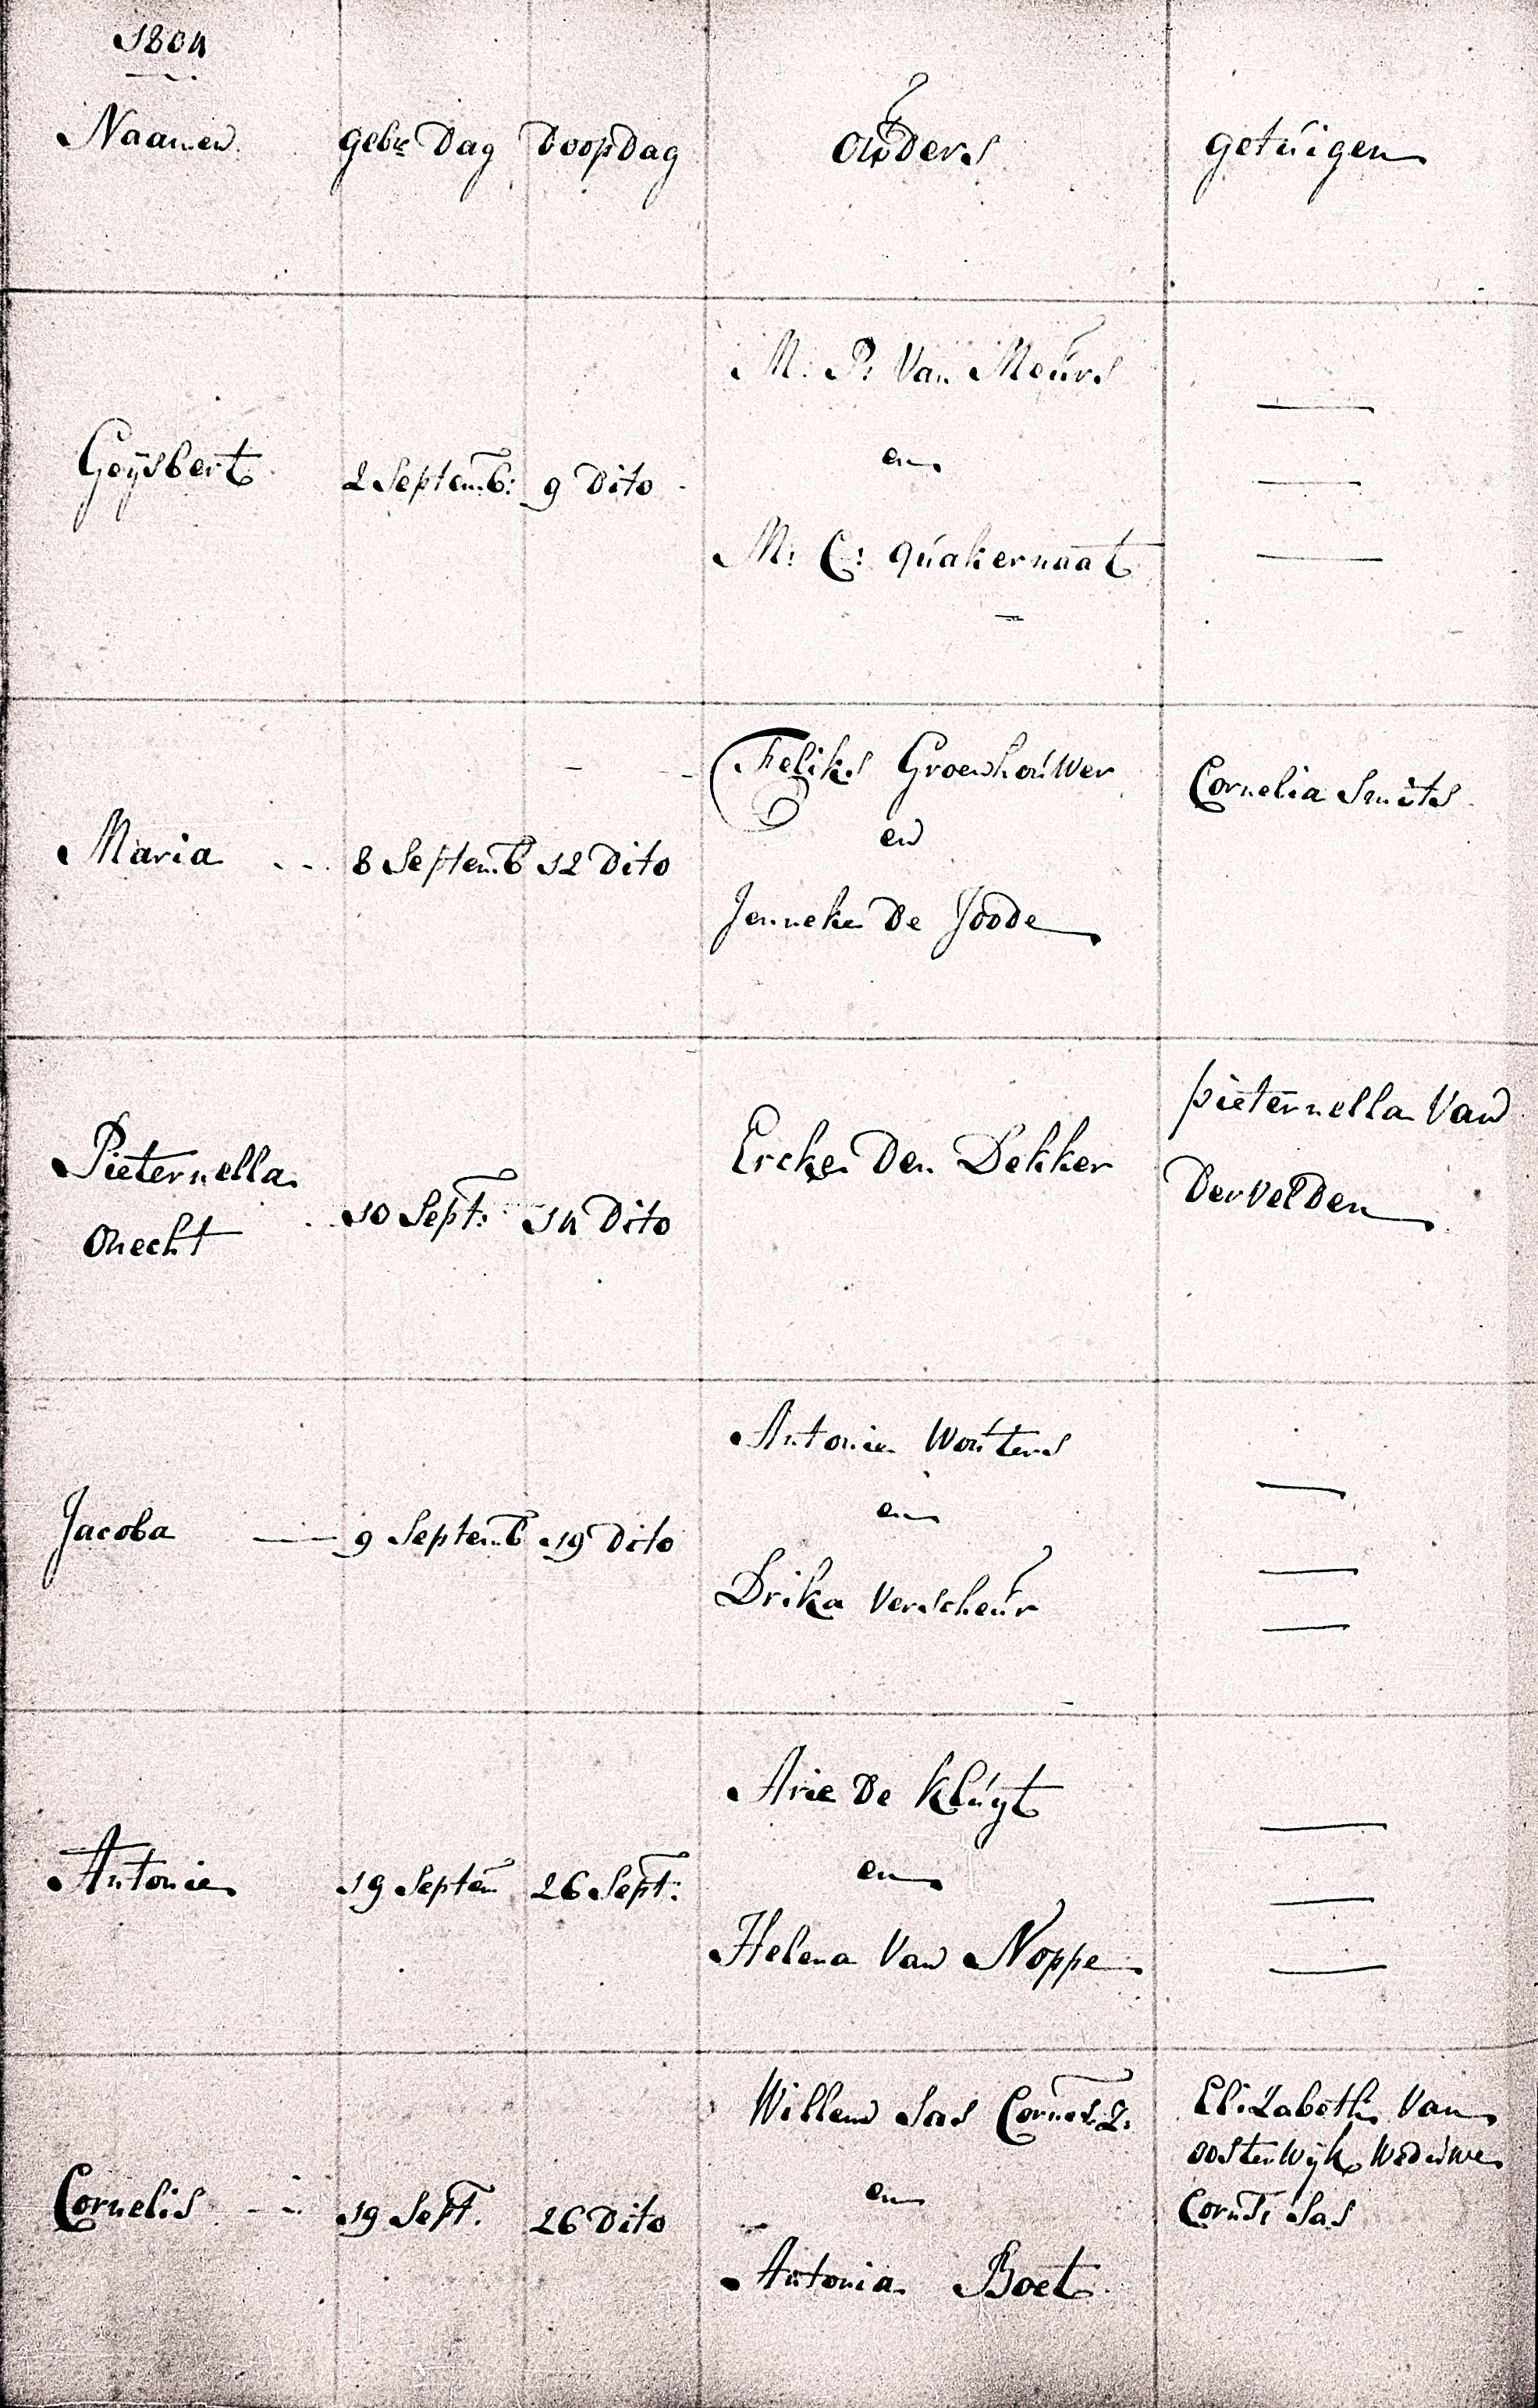 1804
Naamen gebre Dag Doop Dag ouders getuigen
M: P: Van Meurs
Geijsbert 2 Septemb: 9 Dito
en
M: C: quakernaat
Feliks Groenhouwer Cornelia Smits
en
Maria 8 Septemb 12 Dito
Jenneke De Joode
Pieternella Van
Pieternella Ercke Den Dekker
Dervelden
onecht 10 Sept: 14 Dito
Antonie Wouters
en
Jacoba 9 Septemb 19 Dito
Drika Verscheur
Arie De Kluyt
en
Antonie 19 Septem 26 Sept:
Helena Van Noppe
Willem Sas Cornels Z: Elizabeth Van
oosterwijk Weduwe
en Corns: Sas
Cornelis 19 Sept. 26 Dito
Antonia Boet